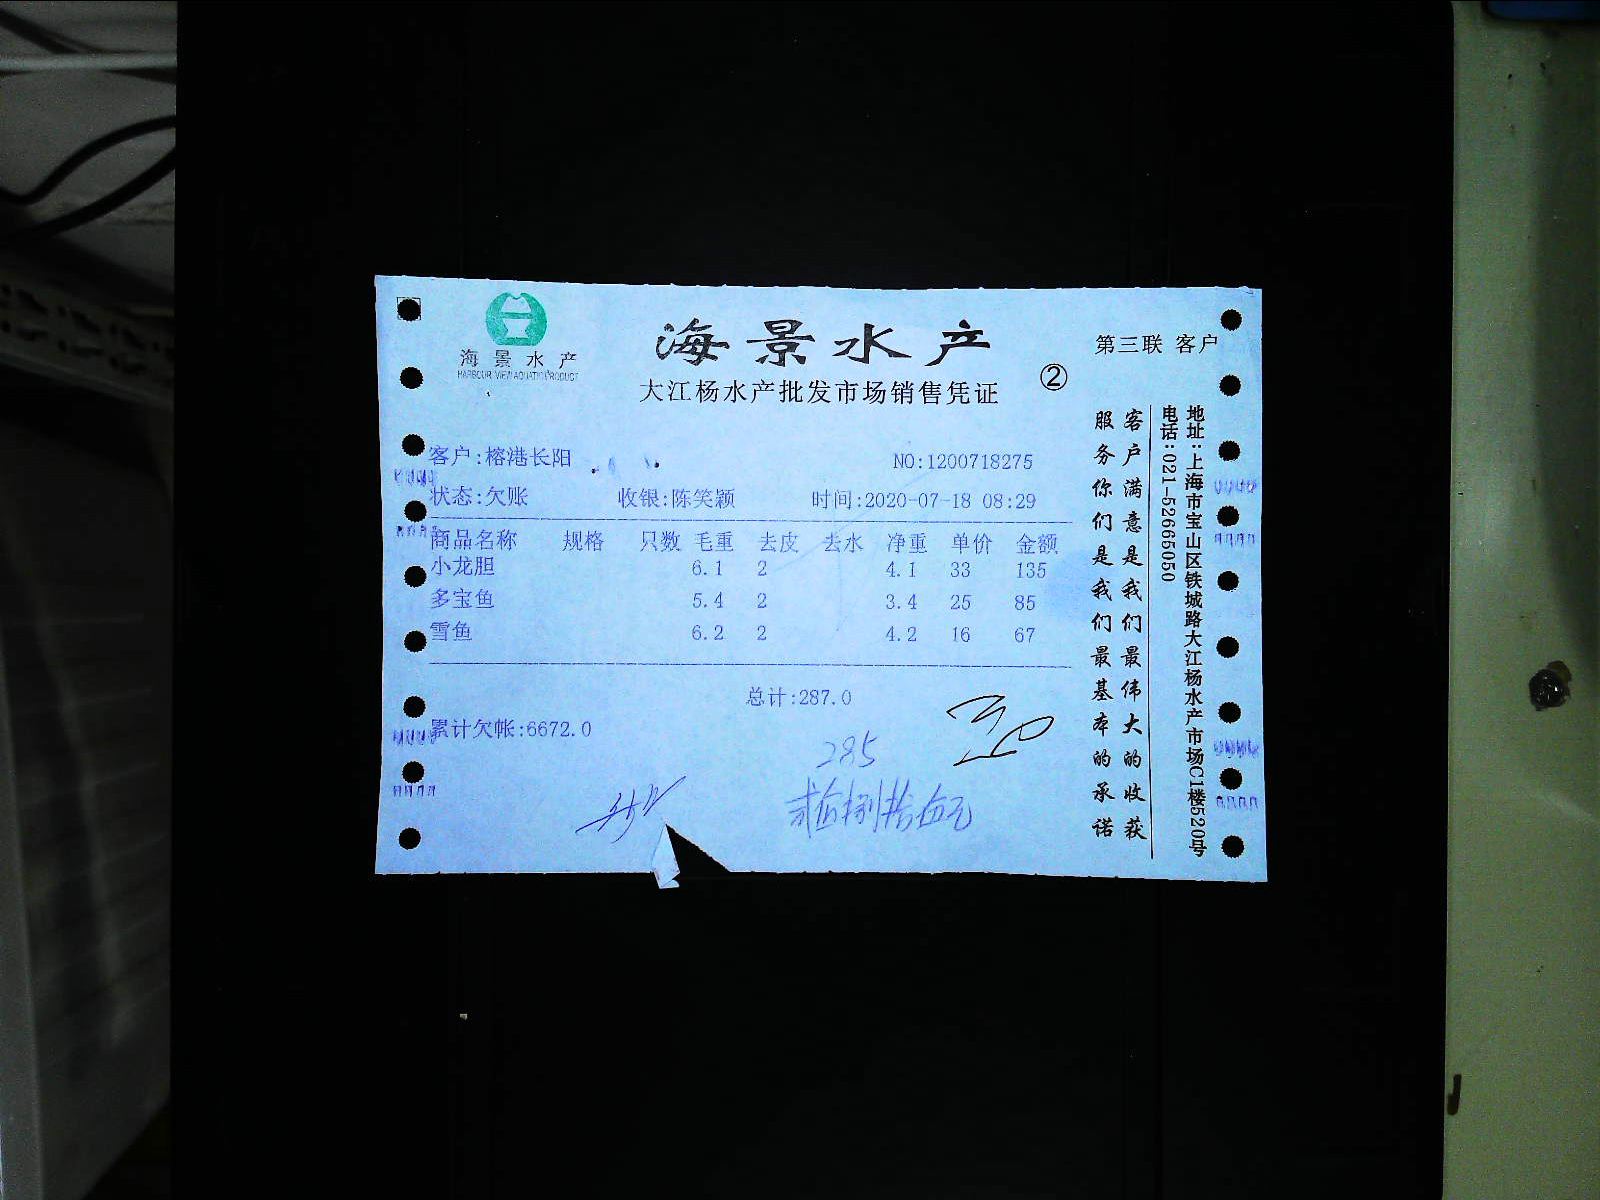 海景水产
HARBOUR VIEW AQUATIC PRODUCT
海景水产
大江杨水产批发市场销售凭证
②
第三联 客户
客户:榕港长阳
NO:1200718275
状态:欠账 收银:陈笑颖 时间:2020-07-18 08:29
商品名称 规格 只数 毛重 去皮 去水 净重 单价 金额
小龙胆 6.1 2 4.1 33 135
多宝鱼 5.4 2 3.4 25 85
雪鱼 6.2 2 4.2 16 67
总计:287.0
累计欠帐:6672.0
285
贰佰捌拾伍元
地址:上海市宝山区铁城路大江杨水产市场C1楼520号
电话:021-52665050
客户满意是我们最伟大的收获
服务你们是我们最基本的承诺